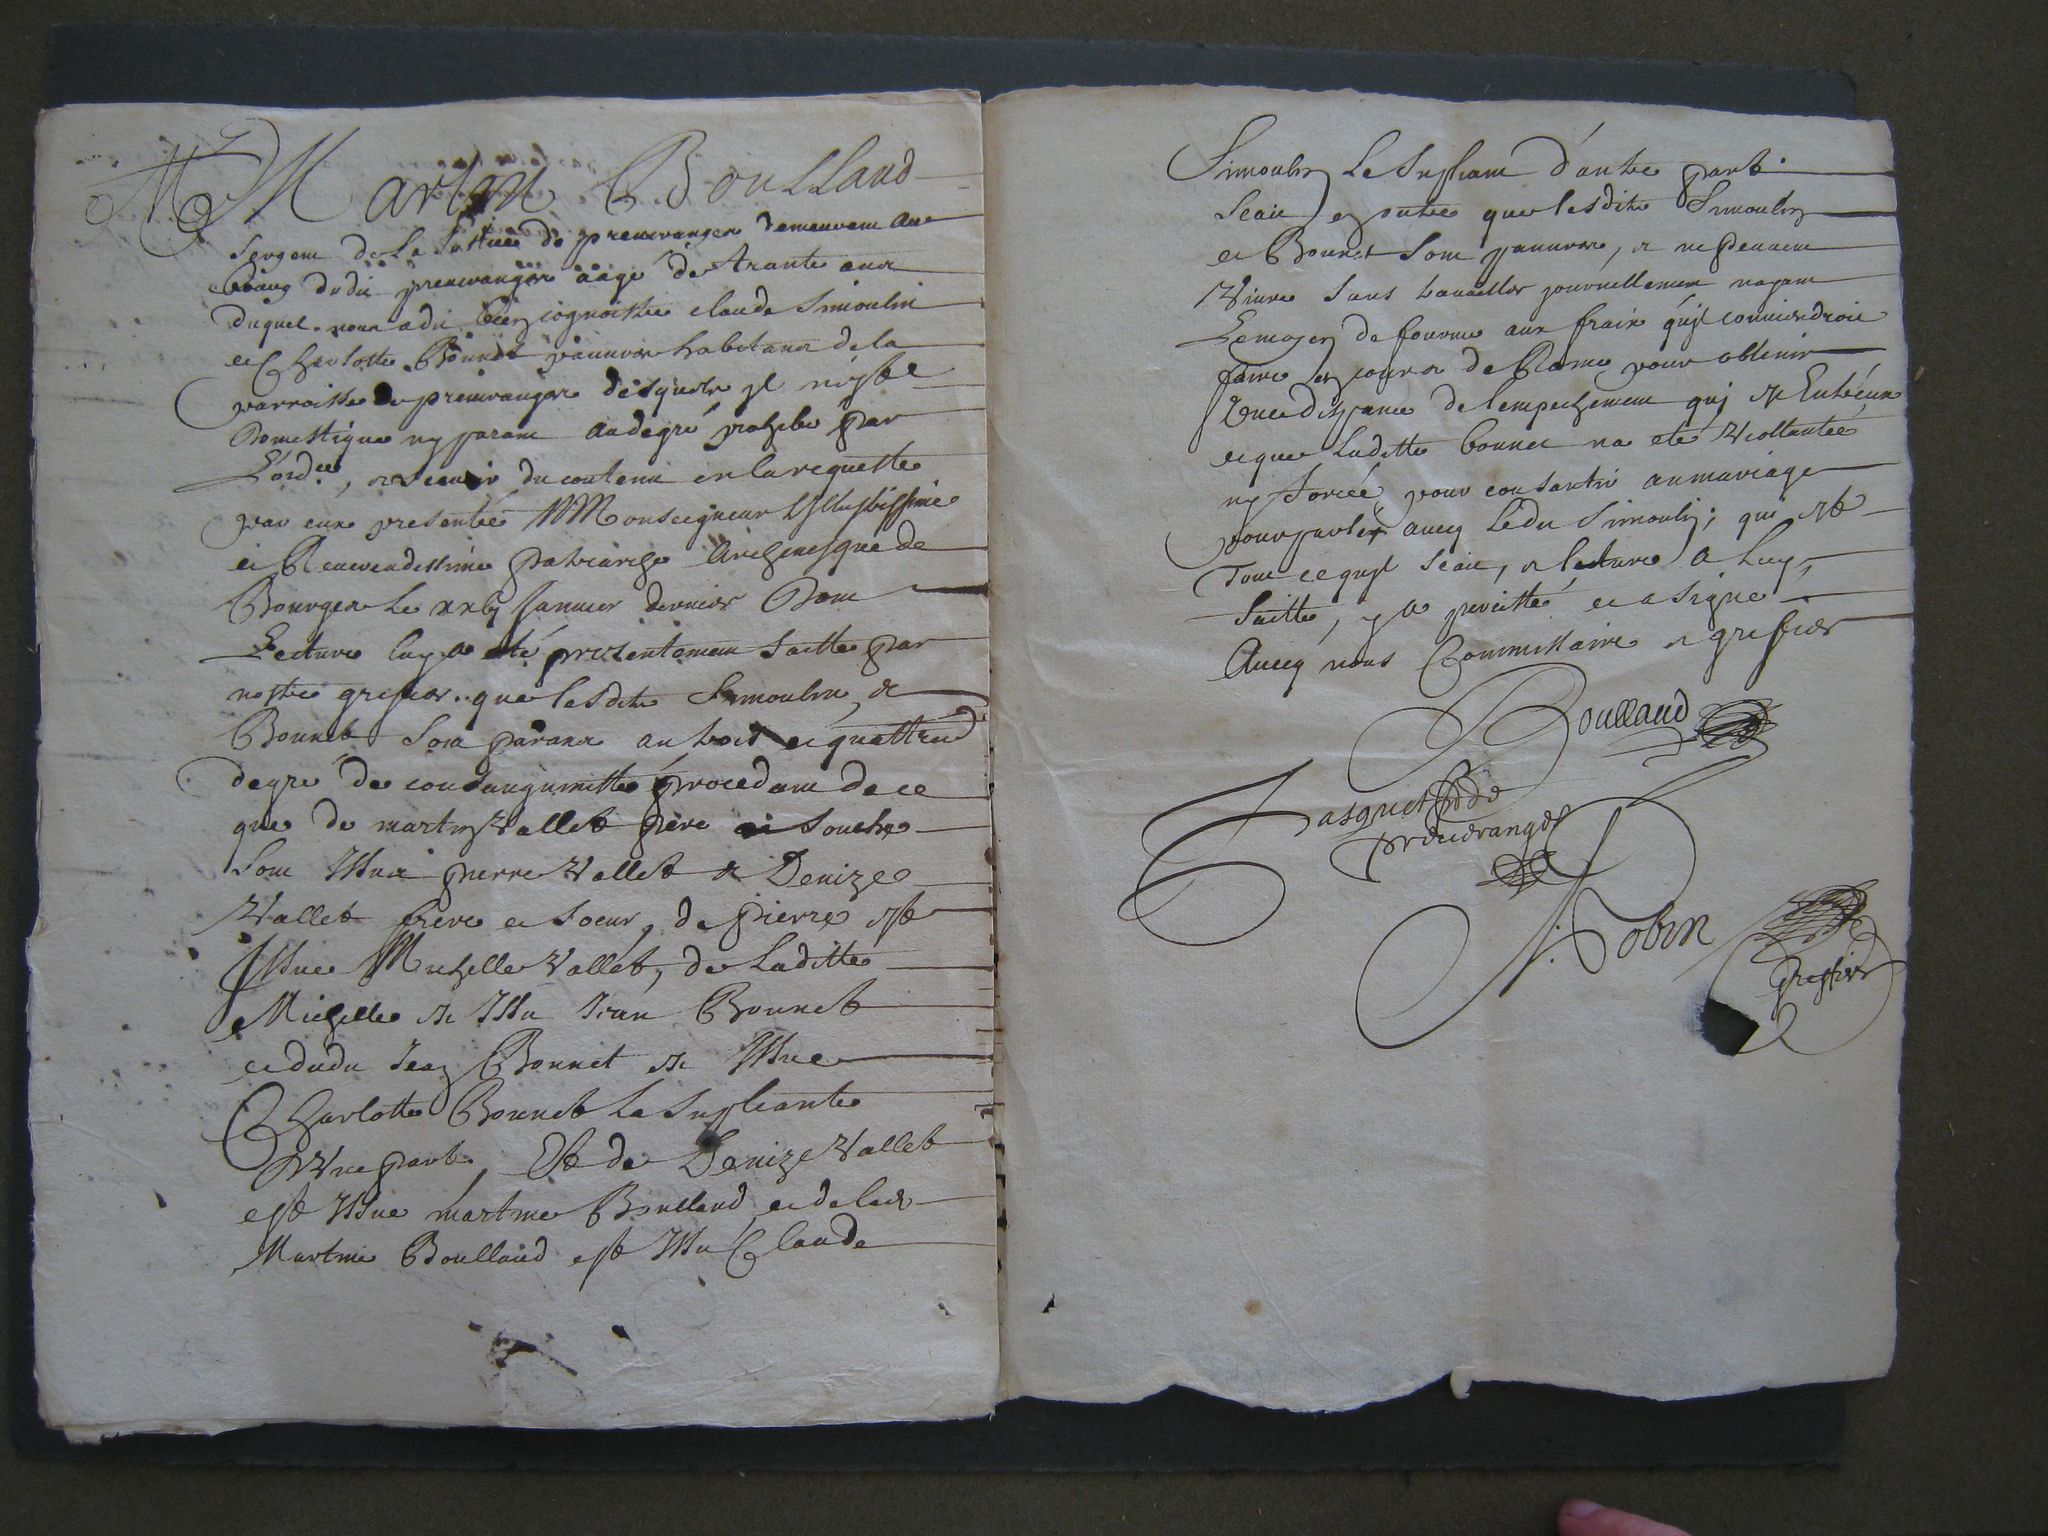 Me Martin Boulland
sergent de la Justice de preuvranger demeurant au
bourg dudit preuvranger aagé de trante ans
duquel nous a dit bien cognoistre claude Simoulin
et Charlotte Bonnet pauvres habitans de la
parroisse de preuvranger desquels yl n'est
domestique ny parant au degré prohibé par
L'ordce, et scavoir du contenu en la requeste
par eux presentée A Monseigneur Illustrissime
et Reverendissime patriarche Archevesque de
Bourges le xxbj Janvier dernier Dont
Lecture luy a eté presentement faitte par
nostre greffier que lesdits Simoulin et
Bonnet sont parans au trois et quattried
degré de consanguinitté procedant de ce
que de martin Vallet père et souche
sont Issus pierre Vallet et Denize
Vallet frere et soeur, de pierre est
Issue Michelle Vallet, de Laditte
Michelle est Issu Jean Bonnet
et dudit Jean Bonnet est Issue
Charlotte Bonnet la supliante
d'Une part, Et de Denize Vallet
est Issue martine Boulland et de lade
Martine Boulland est Issu Claude
Simoulin Le supliant d'autre part.
scait en outre que lesdits Simoulin
et Bonnet sont pauvres, et ne peuvent
Vivre sans travailler journellement nayant
Le moyen de fournir aux frais quyl conviendroit
faire en cour de Rome pour obtenir
Une dispance de lempeschement quj est Entr'eux
et que Laditte bonnet na eté Viollantée
ny forcée pour consantir au mariage
pourparlé avecq Ledit Simoulin; qui est
Tout ce quyl scait, et lecture a luy
faitte, y a percisté et a signé
Avecq nous Commissaire et greffier
Boulland
Jasquet
preuveranges
Robin
greffier